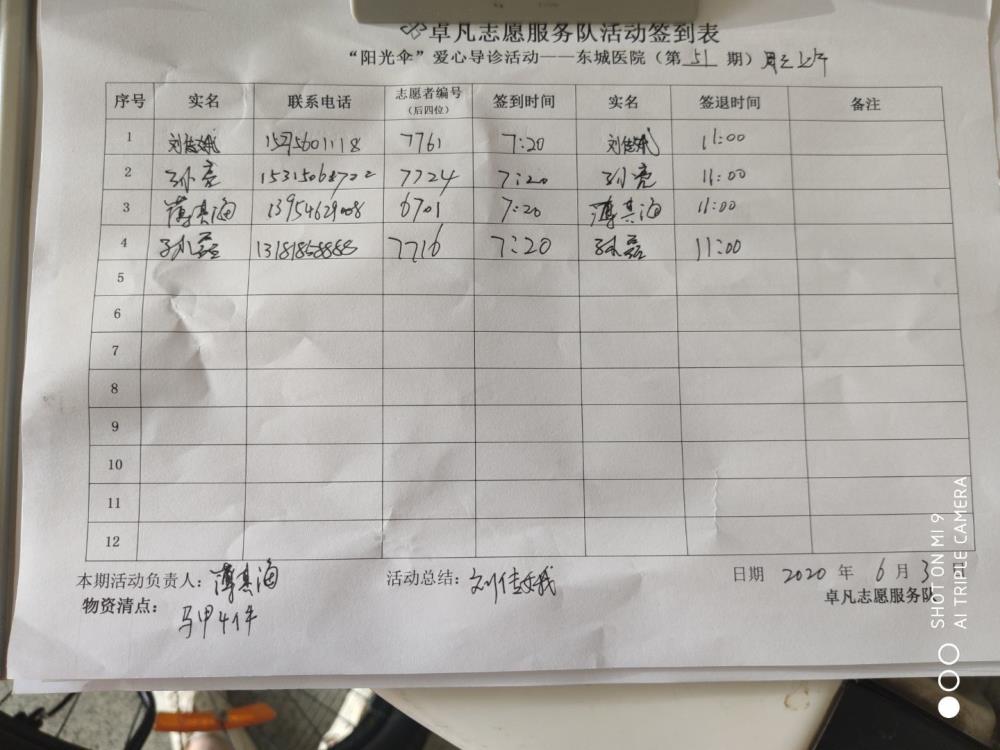 卓凡志愿服务队活动签到表
“阳光伞”爱心导诊活动——东城医院（第 51 期）周三上午
序号 实名 联系电话 志愿者编号（后四位） 签到时间 实名 签退时间 备注
1 刘佳娥 7761 7:20 刘佳娥 11:00
2 孙亮 7724 7:20 孙亮 11:00
3 薄其海 13954629008 6701 7:20 薄其海 11:00
4 孙磊 13181868888 7716 7:20 孙磊 11:00
5
6
7
8
9
10
11
12
本期活动负责人：薄其海 活动总结：刘佳娥 日期 2020 年 6 月 3 日
物资清点：马甲4件 卓凡志愿服务队
SHOT ON MI 9
AI TRIPLE CAMERA